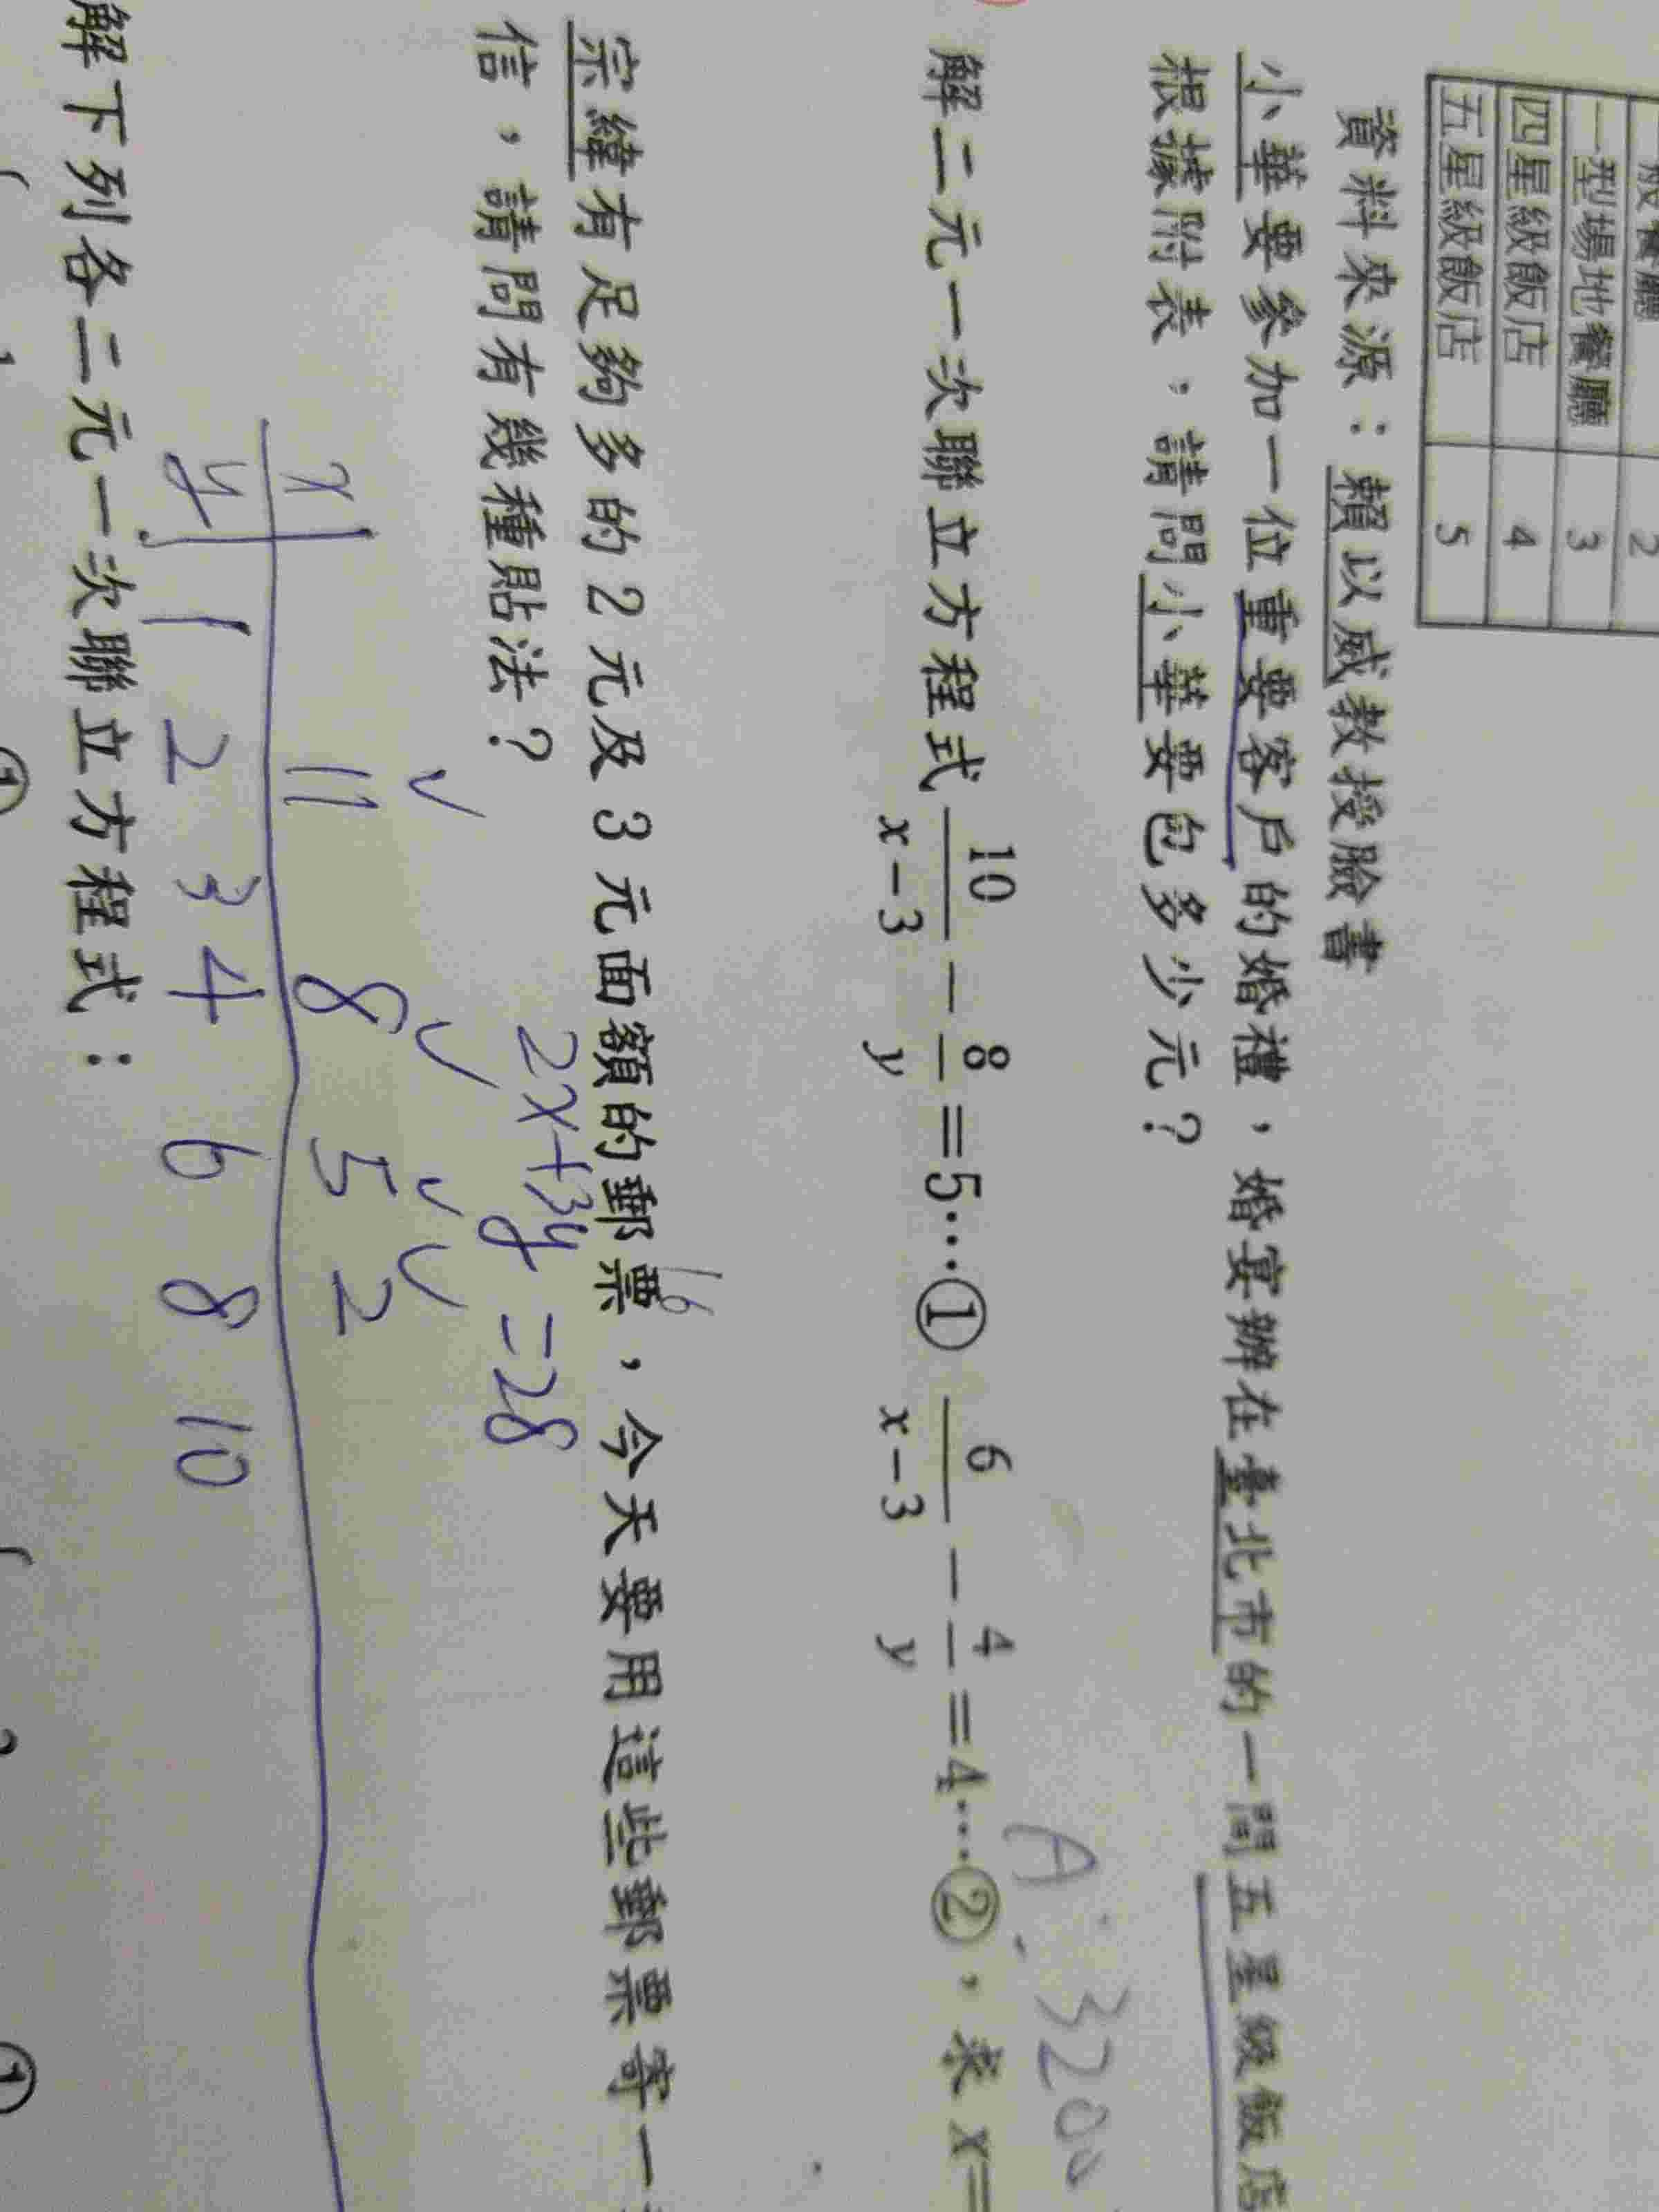 2
一型場地餐廳 3
四星級飯店 4
五星級飯店 5
資料來源：賴以威教授臉書
小華要參加一位重要客戶的婚禮，婚宴辦在臺北市的一間五星級飯店
根據附表，請問小華要包多少元？
A: 320
解二元一次聯立方程式 10/(x−3) − 8/y =5…① 6/(x−3) − 4/y =4…②，求 x=
16
宗緯有足夠多的2元及3元面額的郵票，今天要用這些郵票寄一
信，請問有幾種貼法？
2x+3y=28
x 11 8 5 2
y 1 2 3 4 6 8 10
解下列各二元一次聯立方程式：
① ①